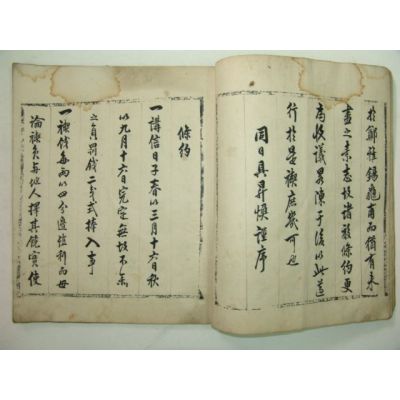 於鄒稚錫龜甫而猶有未
盡之素志故諸般條約更
爲收議畧陳于後以此遵
行於是禊庶幾可也
同日具昇愼謹序
條約
一講信日子春以三月十六日秋
以九月十六日完定無故不參
之員罰錢二分式捧入事
一禊錢每兩以四分邊殖利而毋
論禊員與他人擇其饒實使